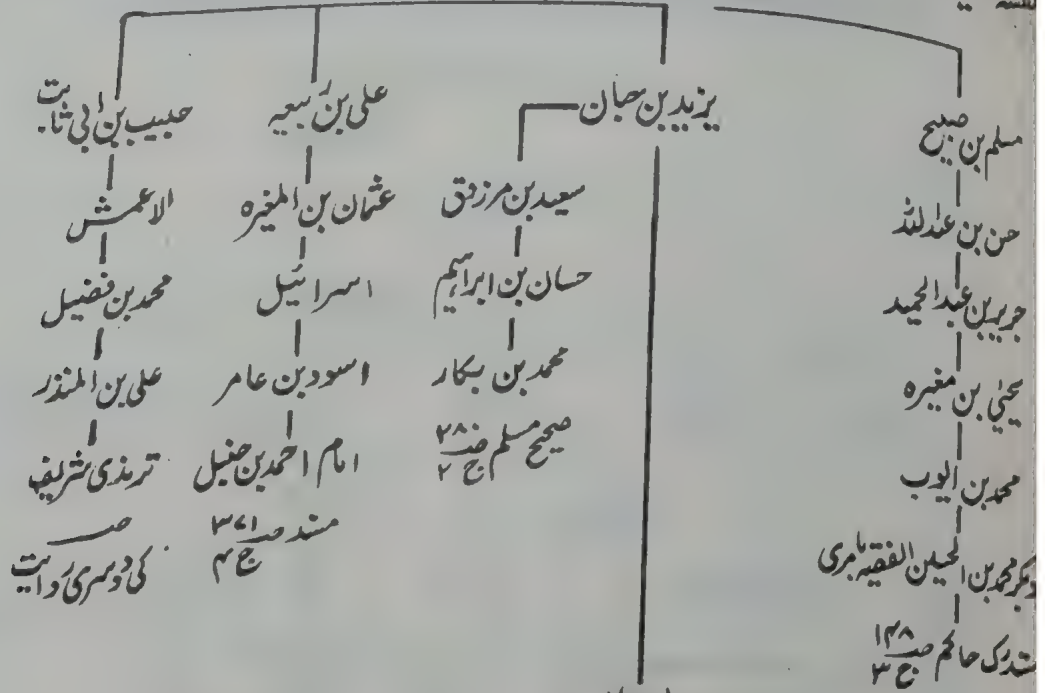 مسلم بن صبیح
حسن بن عبداللہ
جریر بن عبدالحمید
یحییٰ بن مغیرہ
محمد بن ایوب
محمد بن الحسین الفقیہ
مستدرک حاکم صـ ۱۴۸ ج ۳
یزید بن حبان
سعید بن مرزوق
حسان بن ابراہیم
محمد بن بکار
صحیح مسلم صـ ۲۸۰ ج ۲
علی بن ربیعہ
عثمان بن المغیرہ
اسرائیل
اسود بن عامر
امام احمد بن حنبل
مسند صـ ۳۷۱ ج ۴
حبیب بن ابی ثابت
الاعمش
محمد بن فضیل
علی بن المنذر
ترمذی شریف
صـ
کی دوسری روایت